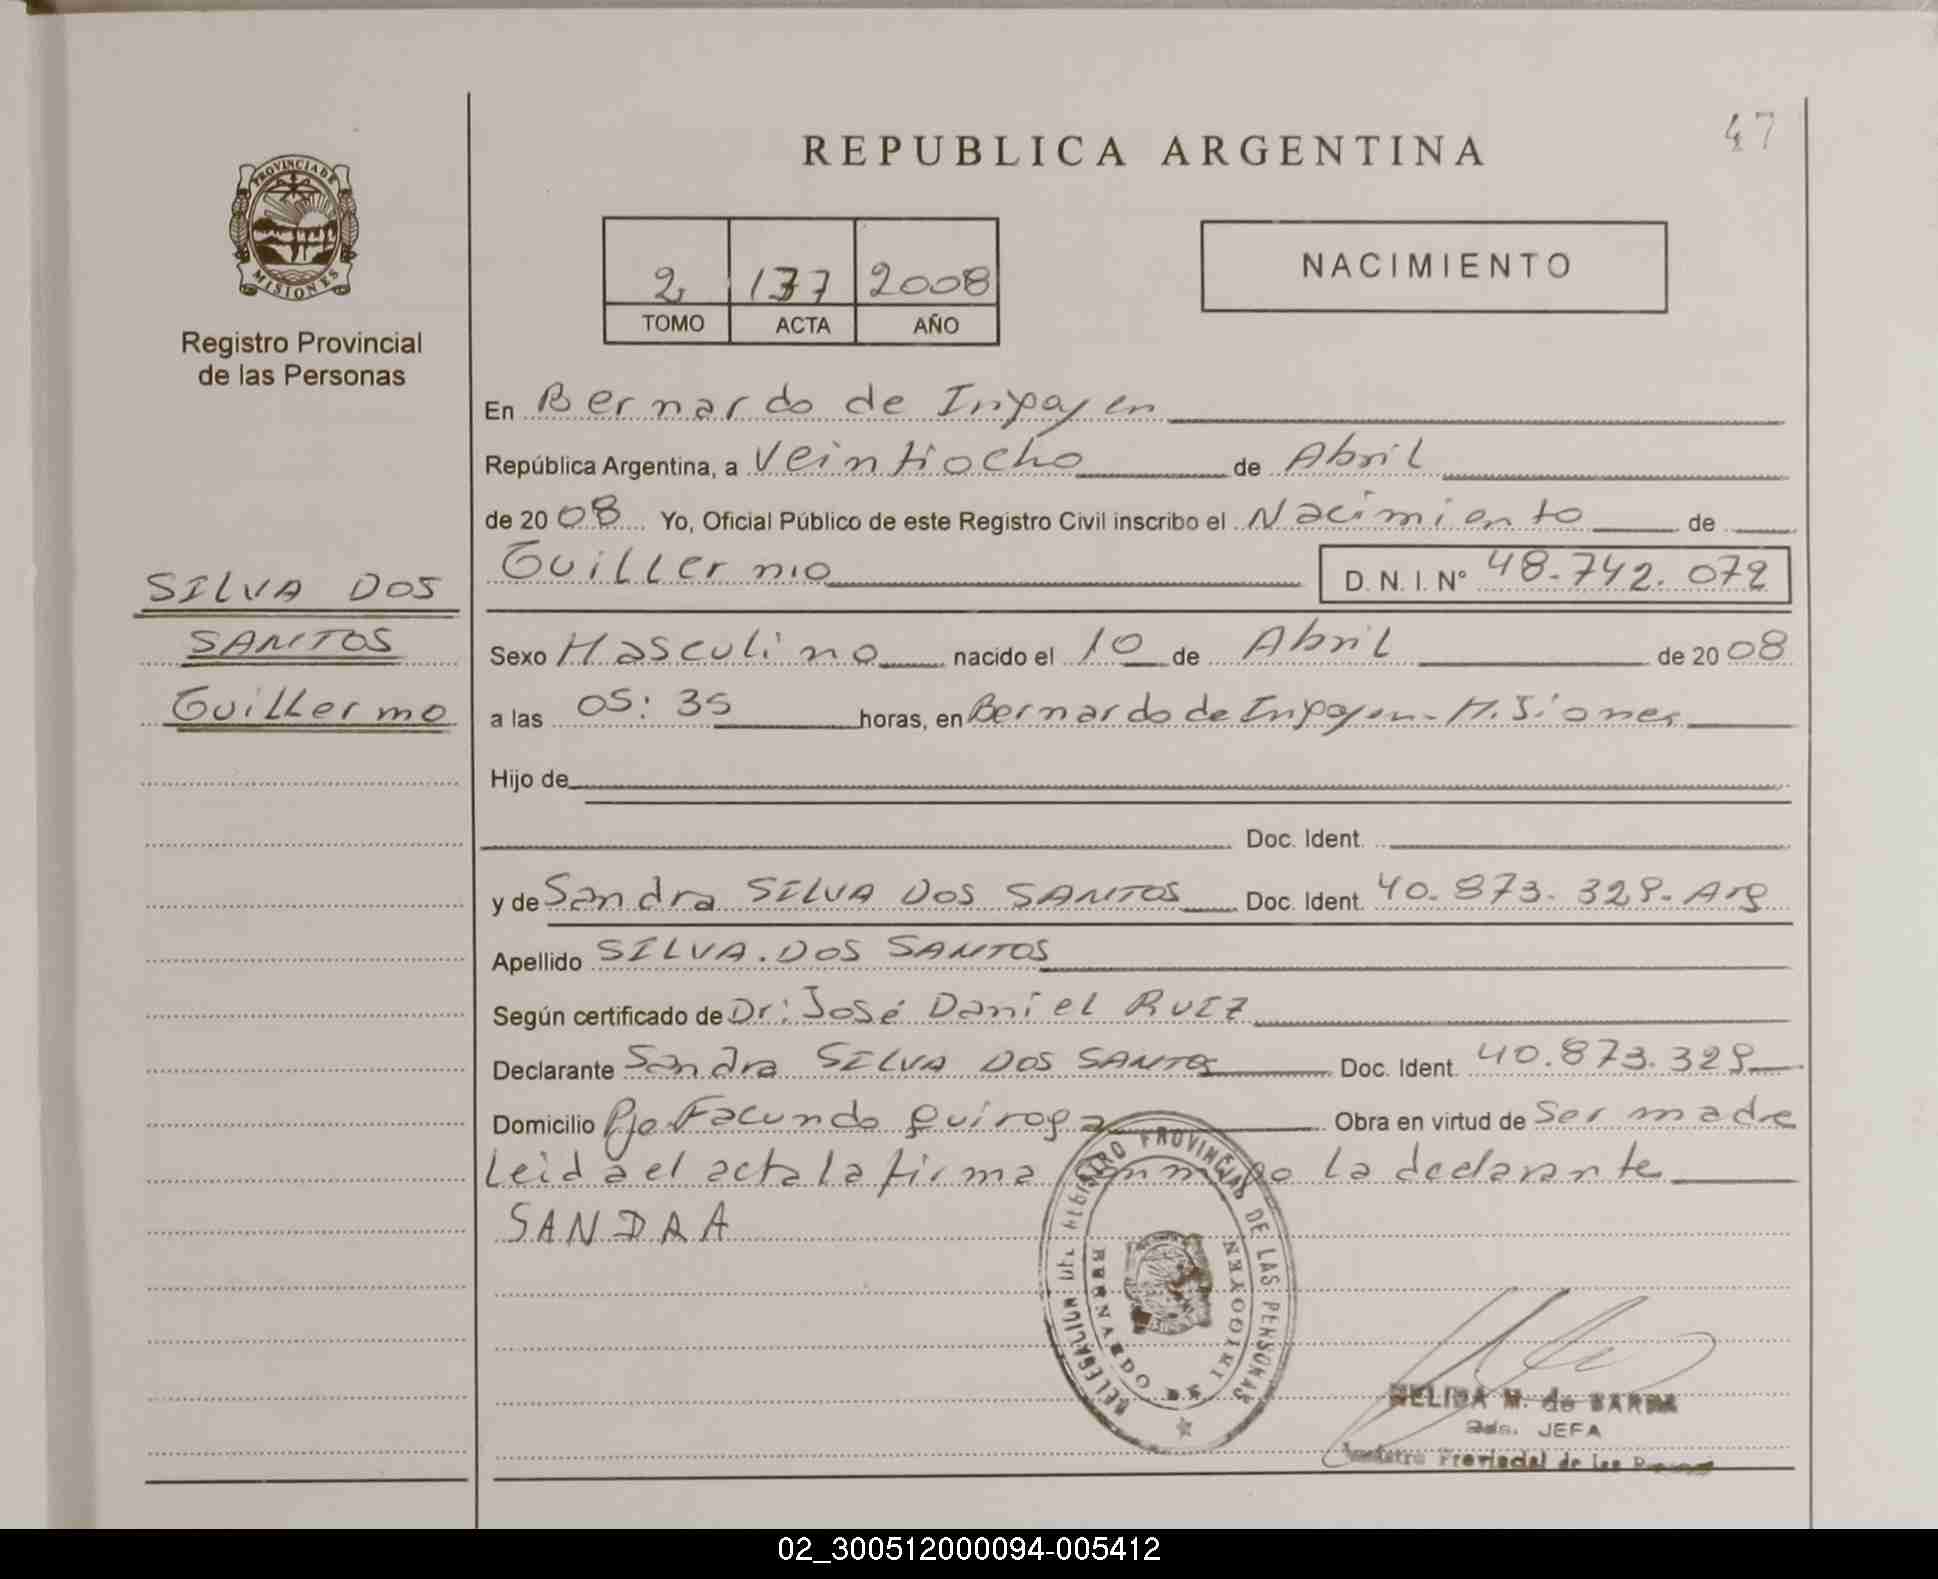 47
REPUBLICA ARGENTINA
PROVINCIA DE
MISIONES
Registro Provincial
de las Personas
2 137 2008
TOMO ACTA AÑO
NACIMIENTO
En Bernardo de Irigoyen
República Argentina, a Veintiocho de Abril
de 2008 Yo, Oficial Público de este Registro Civil inscribo el Nacimiento de
Guillermo D. N. I. N° 48.742.072
SILVA DOS
SANTOS
Guillermo
Sexo Masculino nacido el 10 de Abril de 2008
a las 05:35 horas, en Bernardo de Irigoyen - Misiones
Hijo de
Doc. Ident.
y de Sandra SILVA DOS SANTOS Doc. Ident. 40.873.329. Arg
Apellido SILVA DOS SANTOS
Según certificado de Dr: José Daniel RUIZ
Declarante Sandra SILVA DOS SANTOS Doc. Ident. 40.873.329
Domicilio Pje Facundo Quiroga Obra en virtud de Ser madre
Leida el acta la firma la declarante
SANDRA
DELEGACION DEL REGISTRO PROVINCIAL DE LAS PERSONAS
BERNARDO DE IRIGOYEN
NELIDA M. de
JEFA
Registro Provincial de las
02_300512000094-005412